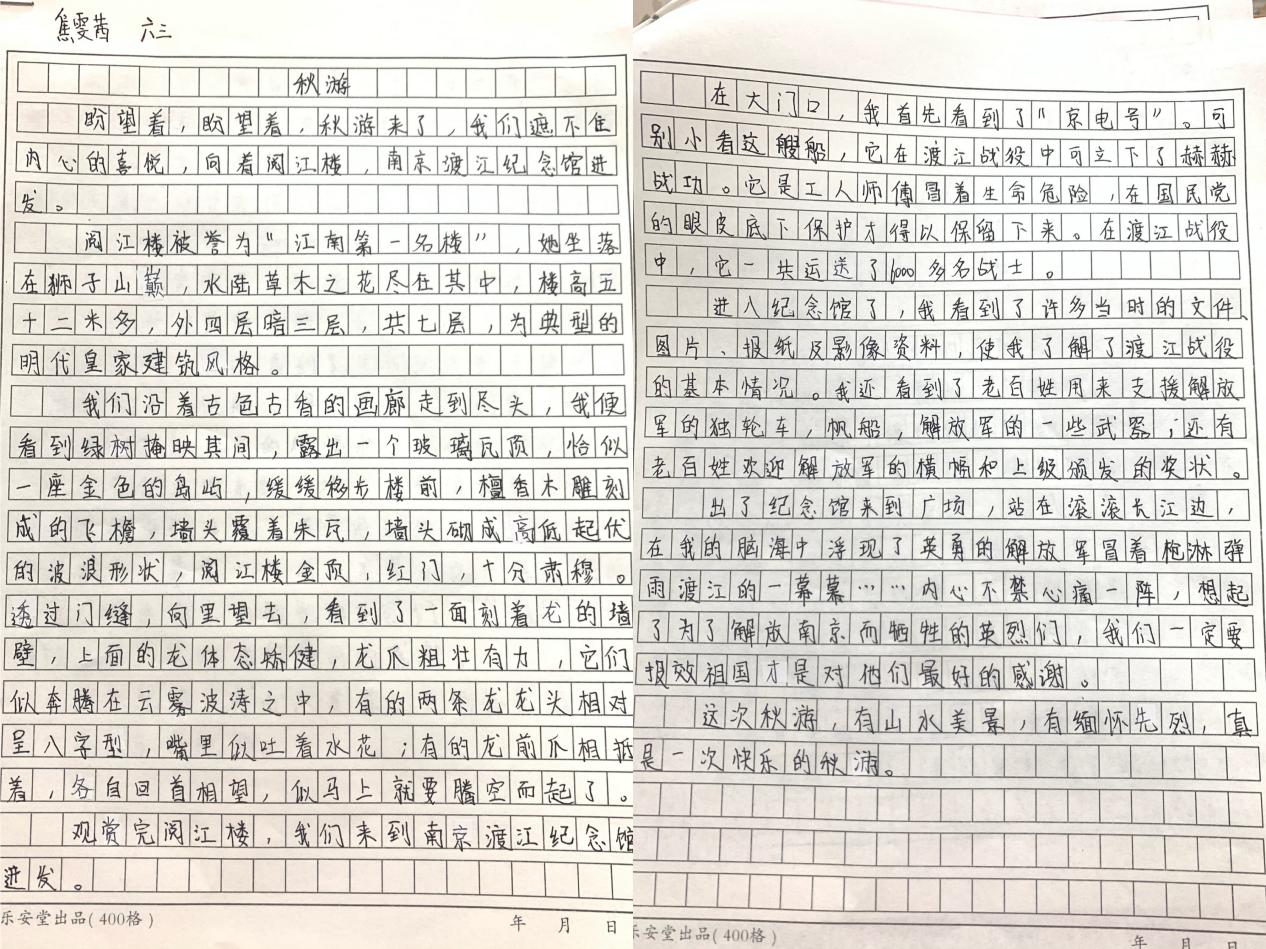 焦雯茜 六三
秋游
盼望着，盼望着，秋游来了，我们遮不住
内心的喜悦，向着阅江楼，南京渡江纪念馆进
发。
阅江楼被誉为“江南第一名楼”，她坐落
在狮子山巅，水陆草木之花尽在其中，楼高五
十二米多，外四层暗三层，共七层，为典型的
明代皇家建筑风格。
我们沿着古色古香的画廊走到尽头，我便
看到绿树掩映其间，露出一个玻璃瓦顶，恰似
一座金色的岛屿，缓缓移步楼前，檀香木雕刻
成的飞檐，墙头覆着朱瓦，墙头砌成高低起伏
的波浪形状，阅江楼金顶，红门，十分肃穆。
透过门缝，向里望去，看到了一面刻着龙的墙
壁，上面的龙体态矫健，龙爪粗壮有力，它们
似奔腾在云雾波涛之中，有的两条龙龙头相对
呈八字型，嘴里似吐着水花；有的龙前爪相抵
着，各自回首相望，似马上就要腾空而起了。
观赏完阅江楼，我们来到南京渡江纪念馆
进发。
乐安堂出品(400格) 年 月 日
在大门口，我首先看到了“京电号”。可
别小看这艘船，它在渡江战役中可立下了赫赫
战功。它是工人师傅冒着生命危险，在国民党
的眼皮底下保护才得以保留下来。在渡江战役
中，它一共运送了6000多名战士。
进入纪念馆了，我看到了许多当时的文件、
图片、报纸及影像资料，使我了解了渡江战役
的基本情况。我还看到了老百姓用来支援解放
军的独轮车，帆船，解放军的一些武器；还有
老百姓欢迎解放军的横幅和上级颁发的奖状。
出了纪念馆来到广场，站在滚滚长江边，
在我的脑海中浮现了英勇的解放军冒着枪淋弹
雨渡江的一幕幕……内心不禁心痛一阵，想起
了为了解放南京而牺牲的英烈们，我们一定要
报效祖国才是对他们最好的感谢。
这次秋游，有山水美景，有缅怀先烈，真
是一次快乐的秋游。
乐安堂出品(400格) 年 月 日